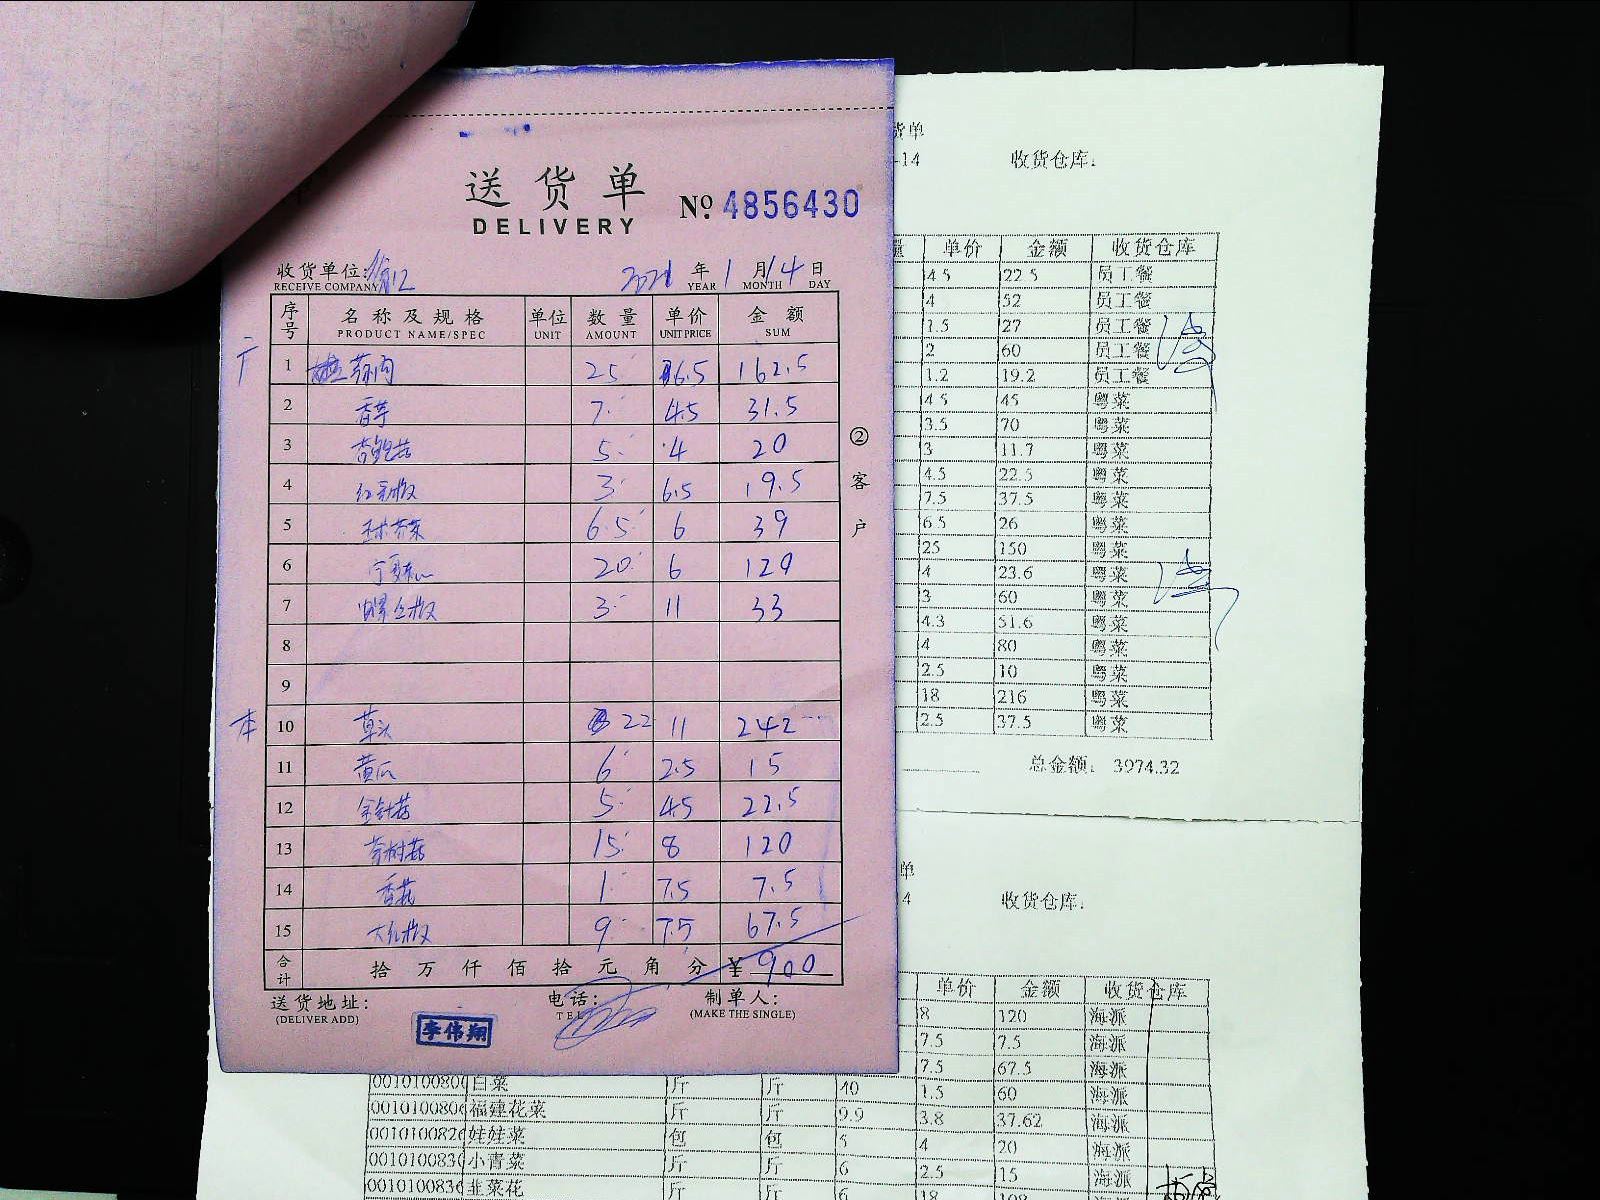 送货单
DELIVERY
№ 4856430
收货单位:
RECEIVE COMPANY
2021 年 1 月 14 日
YEAR MONTH DAY
序号 名称及规格 单位 数量 单价 金额
PRODUCT NAME/SPEC UNIT AMOUNT UNIT PRICE SUM
1 25 6.5 162.5
2 香芋 7 4.5 31.5
3 杏鲍菇 5 4 20
4 红彩椒 3 6.5 19.5
5 6.5 6 39
6 20 6 120
7 螺丝椒 3 11 33
8
9
本
10 草头 22 11 242
11 黄瓜 6 2.5 15
12 金针菇 5 4.5 22.5
13 茶树菇 15 8 120
14 香菇 1 7.5 7.5
15 大红椒 9 7.5 67.5
合计 拾 万 仟 佰 拾 元 角 分 ¥ 900
送货地址: 电话: 制单人:
(DELIVER ADD) TEL (MAKE THE SINGLE)
李伟翔
② 客户
货单
-14 收货仓库:
量 单价 金额 收货仓库
4.5 22.5 员工餐
4 52 员工餐
1.5 27 员工餐
2 60 员工餐
1.2 19.2 员工餐
4.5 45 粤菜
3.5 70 粤菜
3 11.7 粤菜
4.5 22.5 粤菜
7.5 37.5 粤菜
6.5 26 粤菜
25 150 粤菜
4 23.6 粤菜
3 60 粤菜
4.3 51.6 粤菜
4 80 粤菜
2.5 10 粤菜
18 216 粤菜
2.5 37.5 粤菜
总金额: 3974.32
单
4 收货仓库:
单价 金额 收货仓库
8 120 海派
7.5 7.5 海派
7.5 67.5 海派
白菜 斤 斤 40 1.5 60 海派
福建花菜 斤 斤 9.9 3.8 37.62 海派
娃娃菜 包 包 5 4 20 海派
小青菜 斤 斤 6 2.5 15 海派
韭菜花 斤 斤 6 18 108